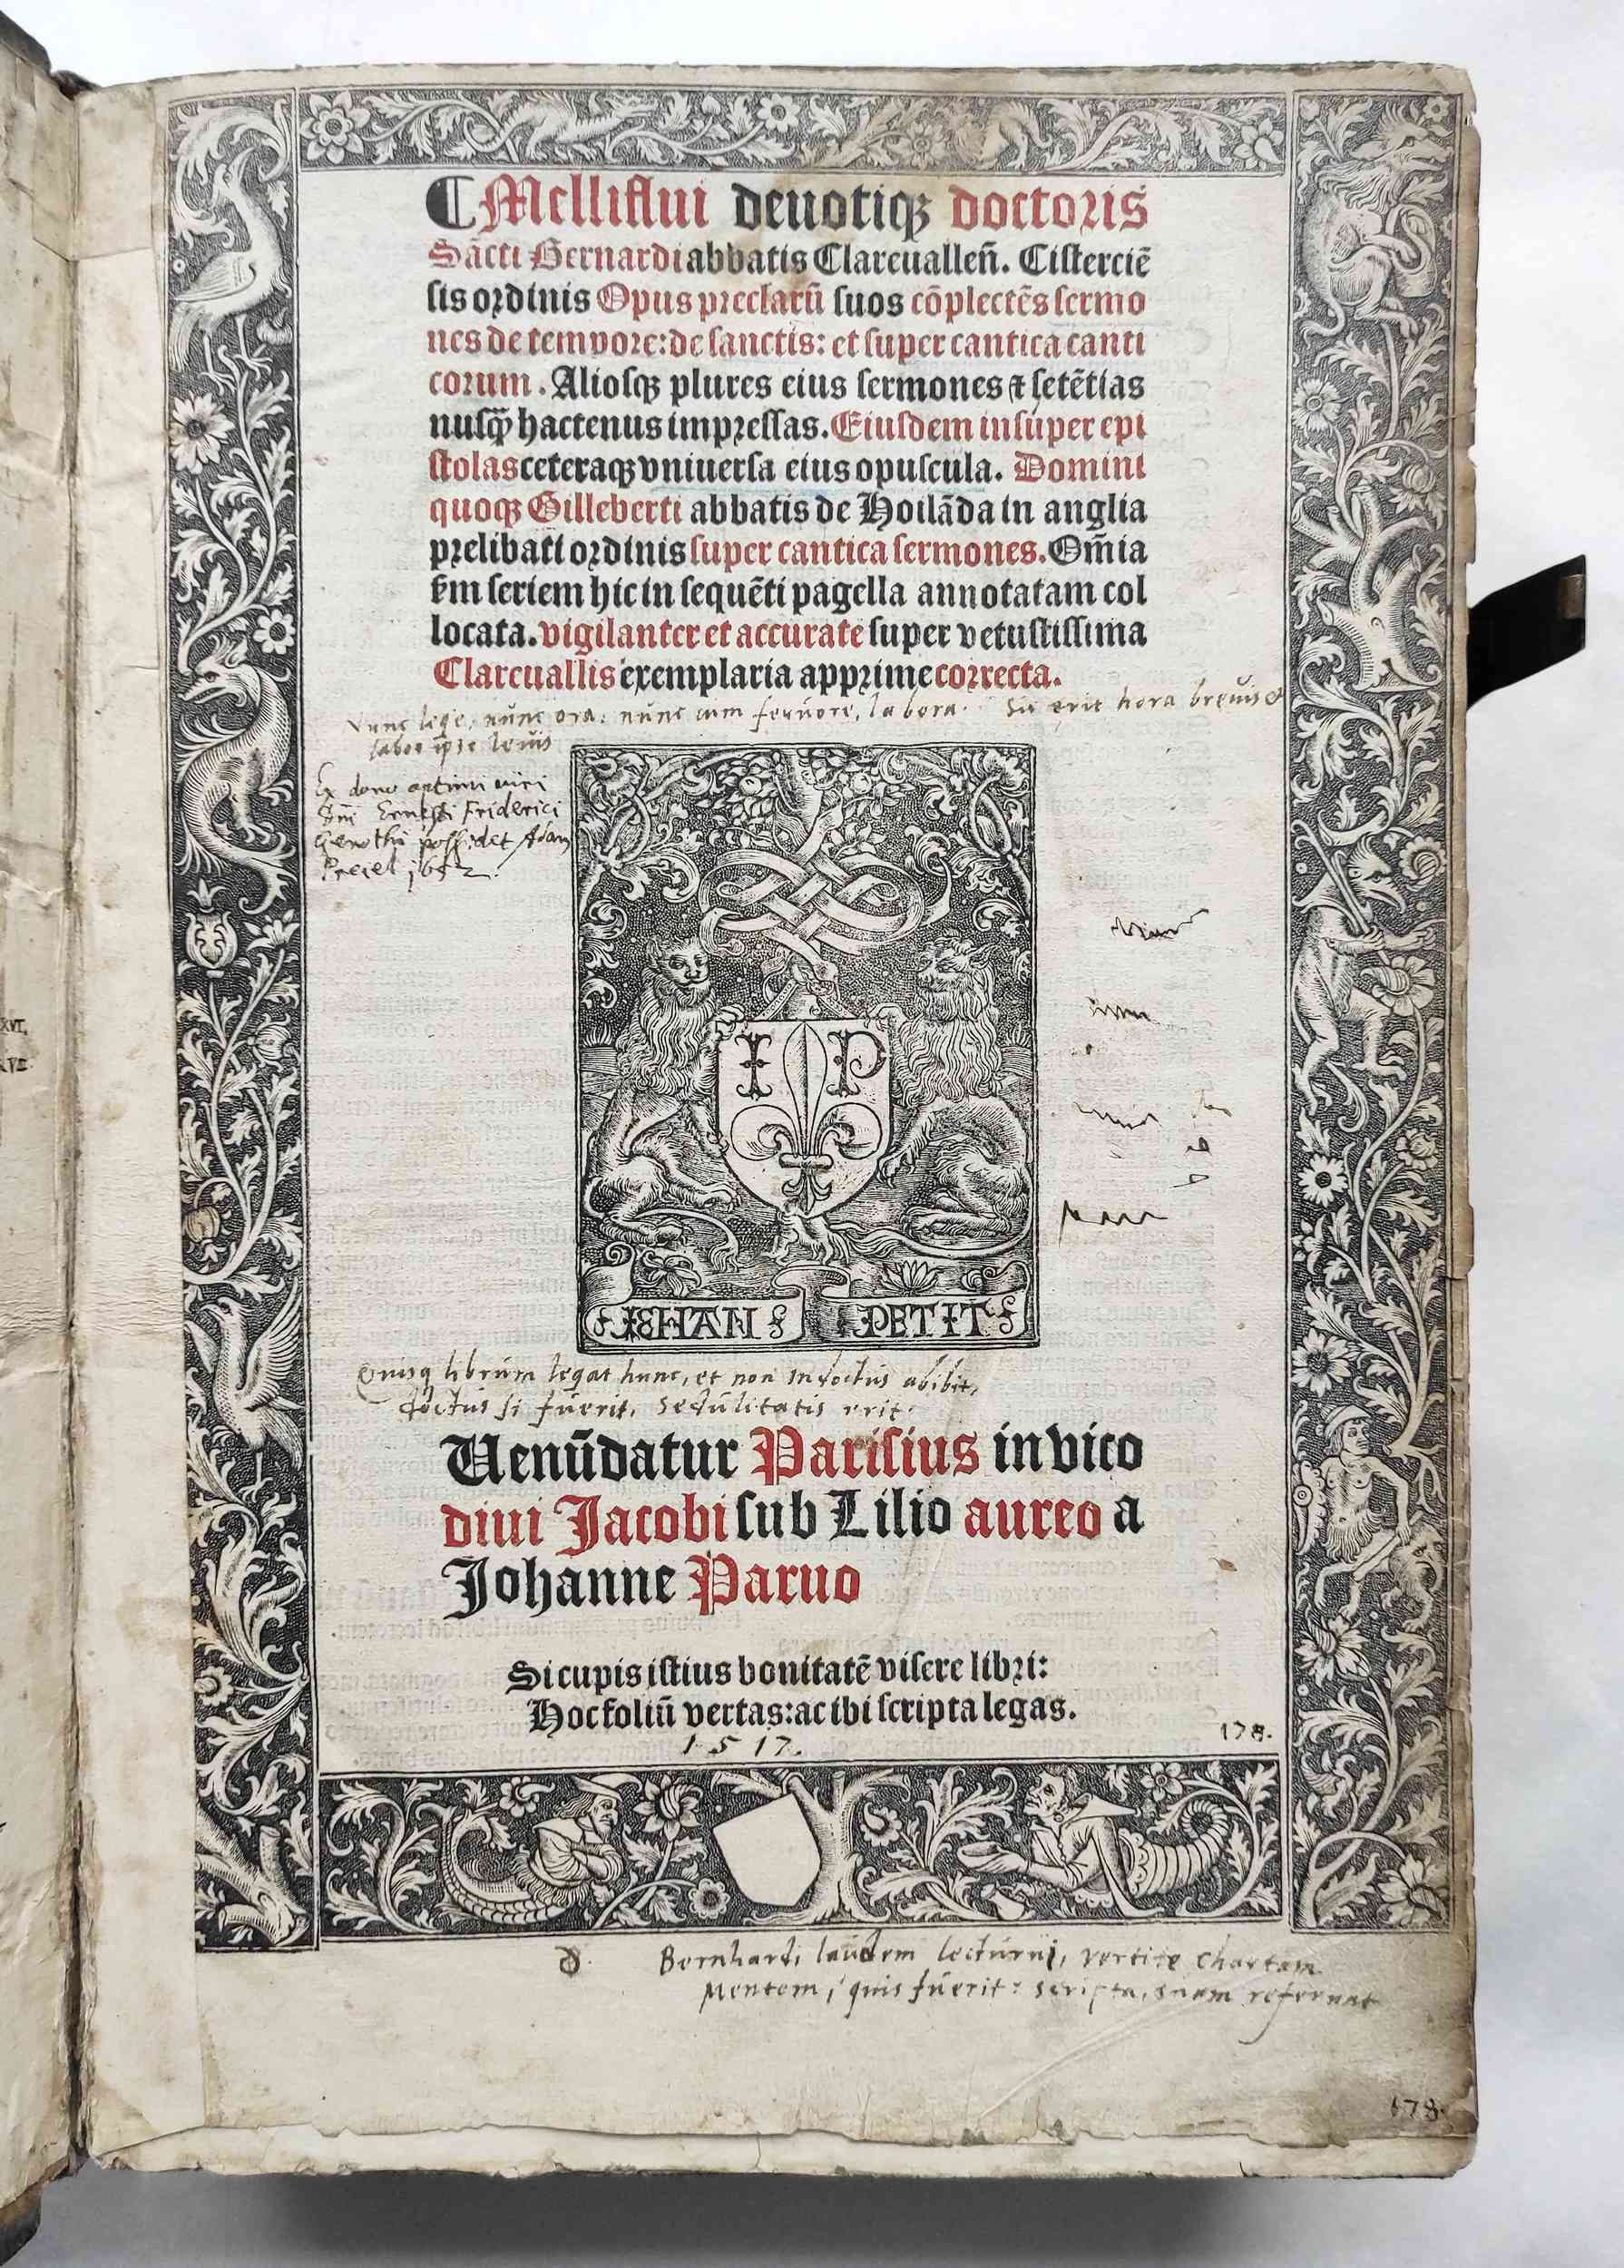 ¶Melliflui deuotiqꝫ doctoris
Sācti Bernardi abbatis Clareualleñ. Cisterciē
sis ordinis Opus preclarū suos cōplectēs sermo
nes de tempore: de sanctis: et super cantica canti
corum. Aliosqꝫ plures eius sermones ⁊ setētias
nusqꝫ̄ hactenus impressas. Eiusdem insuper epi
stolas ceteraqꝫ vniuersa eius opuscula. Domini
quoqꝫ Gilleberti abbatis de Hoilāda in anglia
prelibati ordinis super cantica sermones. Om̄ia
ẜm seriem hic in sequēti pagella annotatam col
locata. vigilanter et accurate super vetustissima
Clareuallis exemplaria apprime correcta.
Nunc lege, nunc ora, nunc cum feruore, labora. Sic erit hora breuis &
labor ipse leuis
Ex dono optimi viri
Dn̄i Ernesti Friderici
possidet Adam
I P
IEHAN PETIT
Quisq librum legat hunc, et non indoctus abibit,
doctus si fuerit, sedulitatis erit.
Uenūdatur Parisius in vico
diui Jacobi sub Lilio aureo a
Johanne Paruo
Si cupis istius bonitatē visere libri:
Hoc foliū vertas: ac ibi scripta legas.
1517.
178.
Bernhardi laudem lecturus, vertite chartam
Mentem, quis fuerit: scripta, suam referunt
178.